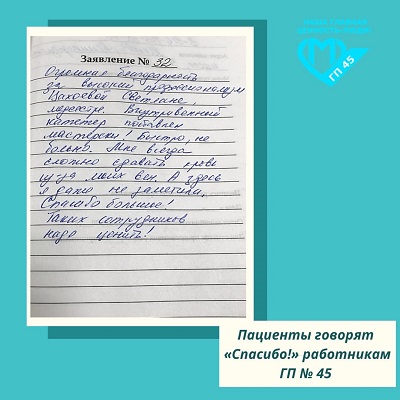 Заявление № 32
Огромная благодарность
за высокий профессионализм
Светлане,
медсестре. Внутривенный
катетер поставлен
мастерски! Быстро, не
больно. Мне всегда
сложно сдавать кровь
из-за моих вен. А здесь
я даже не заметила,
Спасибо большое!
Таких сотрудников
надо ценить!
ГП 45
Пациенты говорят
«Спасибо!» работникам
ГП № 45